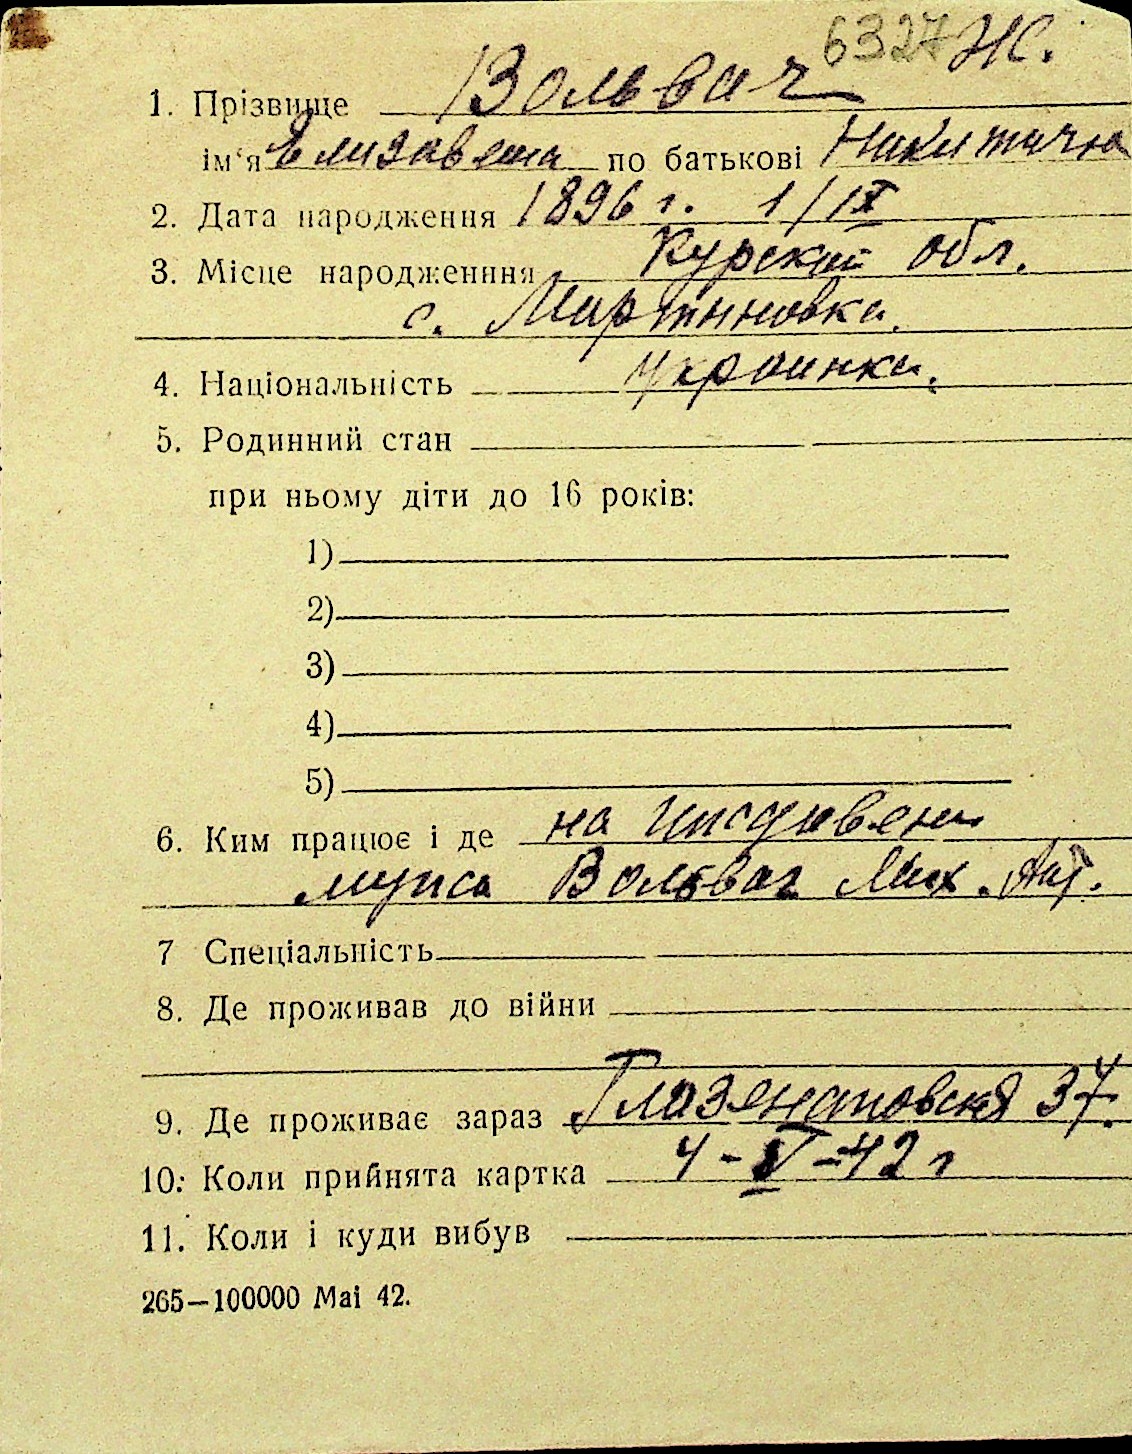 6327 Ж.
1. Прізвище Вольвач
ім‘я Елизавета по батькові Никитична
2. Дата народження 1896 г. 1/IX
3. Місце народженння Курской обл.
с. Мартыновка.
4. Національність украинка.
5. Родинний стан
при ньому діти до 16 років:
1)
2)
3)
4)
5)
6. Ким працює і де на иждивени
мужа Вольвач Мих. Ант.
7 Спеціальність
8. Де проживав до війни
9. Де проживає зараз 37
10. Коли прийнята картка 4-V-42 г
11. Коли і куди вибув
265—100000 Mai 42.